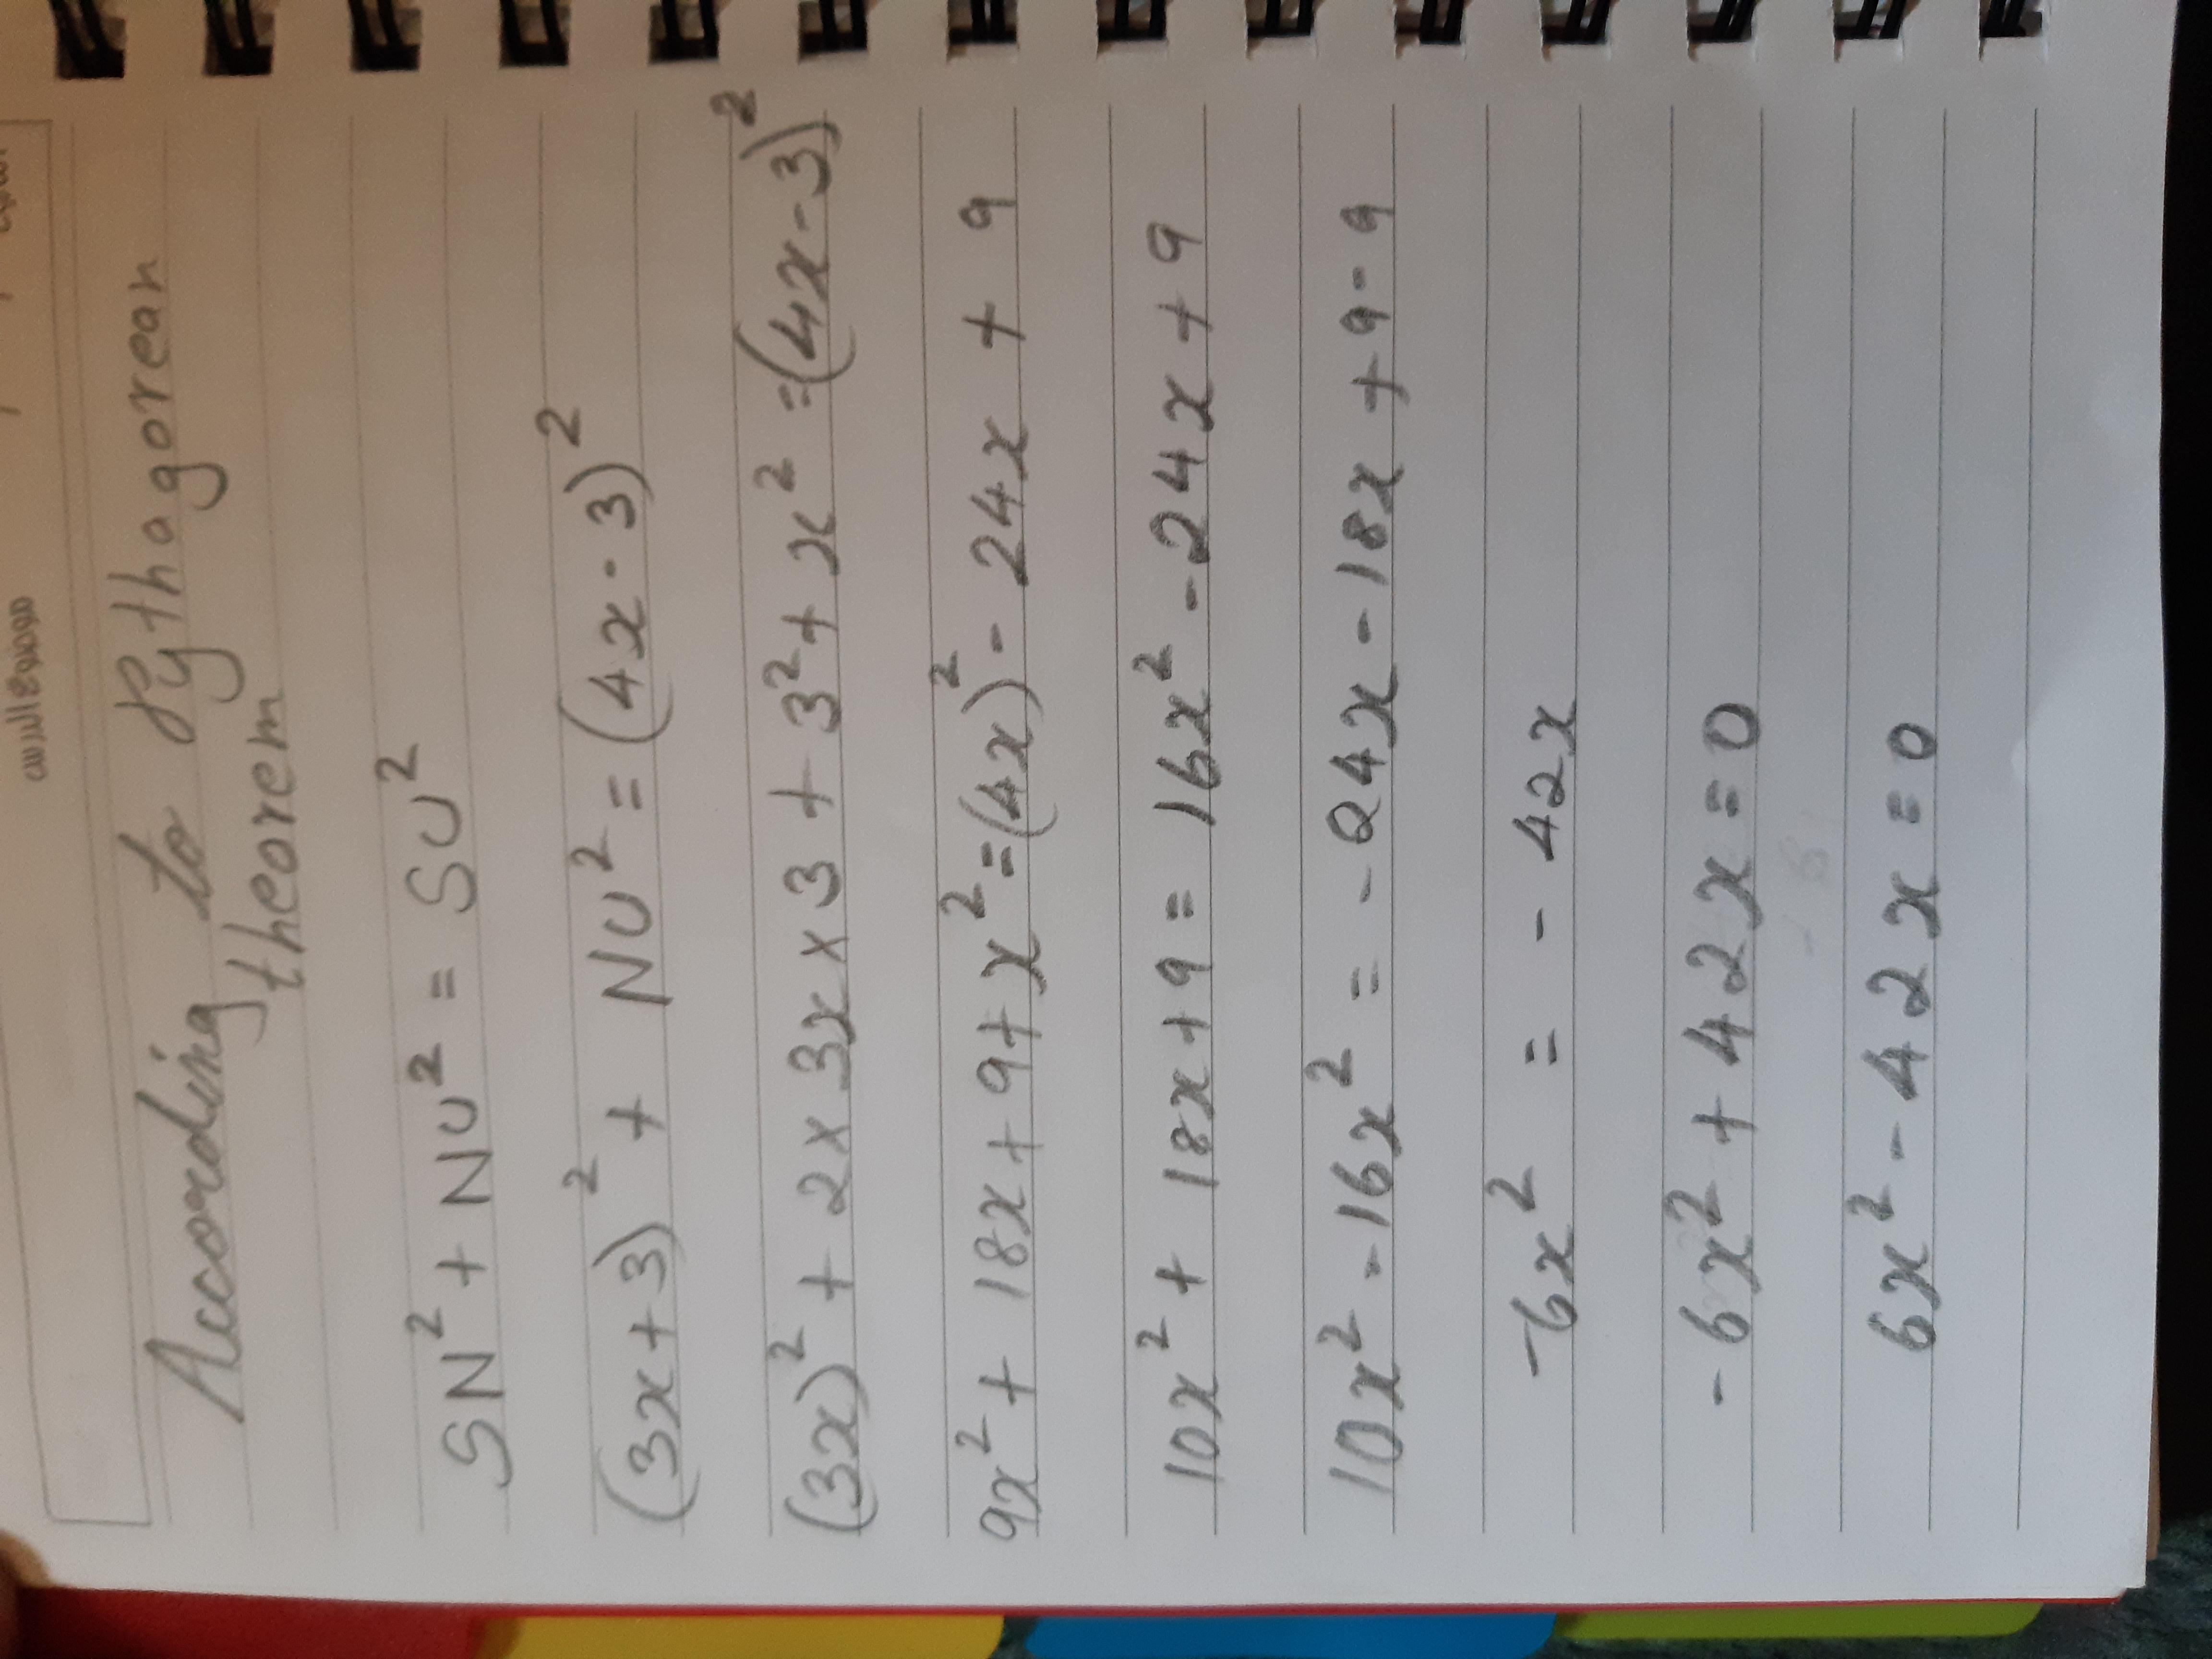 According to Pythagorean
theorem
SN² + NU² = SU²
(3x+3)² + NU² = (4x-3)²
(3x)² + 2×3x×3 + 3² + x² = (4x-3)²
9x² + 18x + 9 + x² = (4x)² - 24x + 9
10x² + 18x + 9 = 16x² - 24x + 9
10x² - 16x² = - 24x - 18x + 9 - 9
-6x² = - 42x
- 6x² + 42x = 0
6x² - 42x = 0